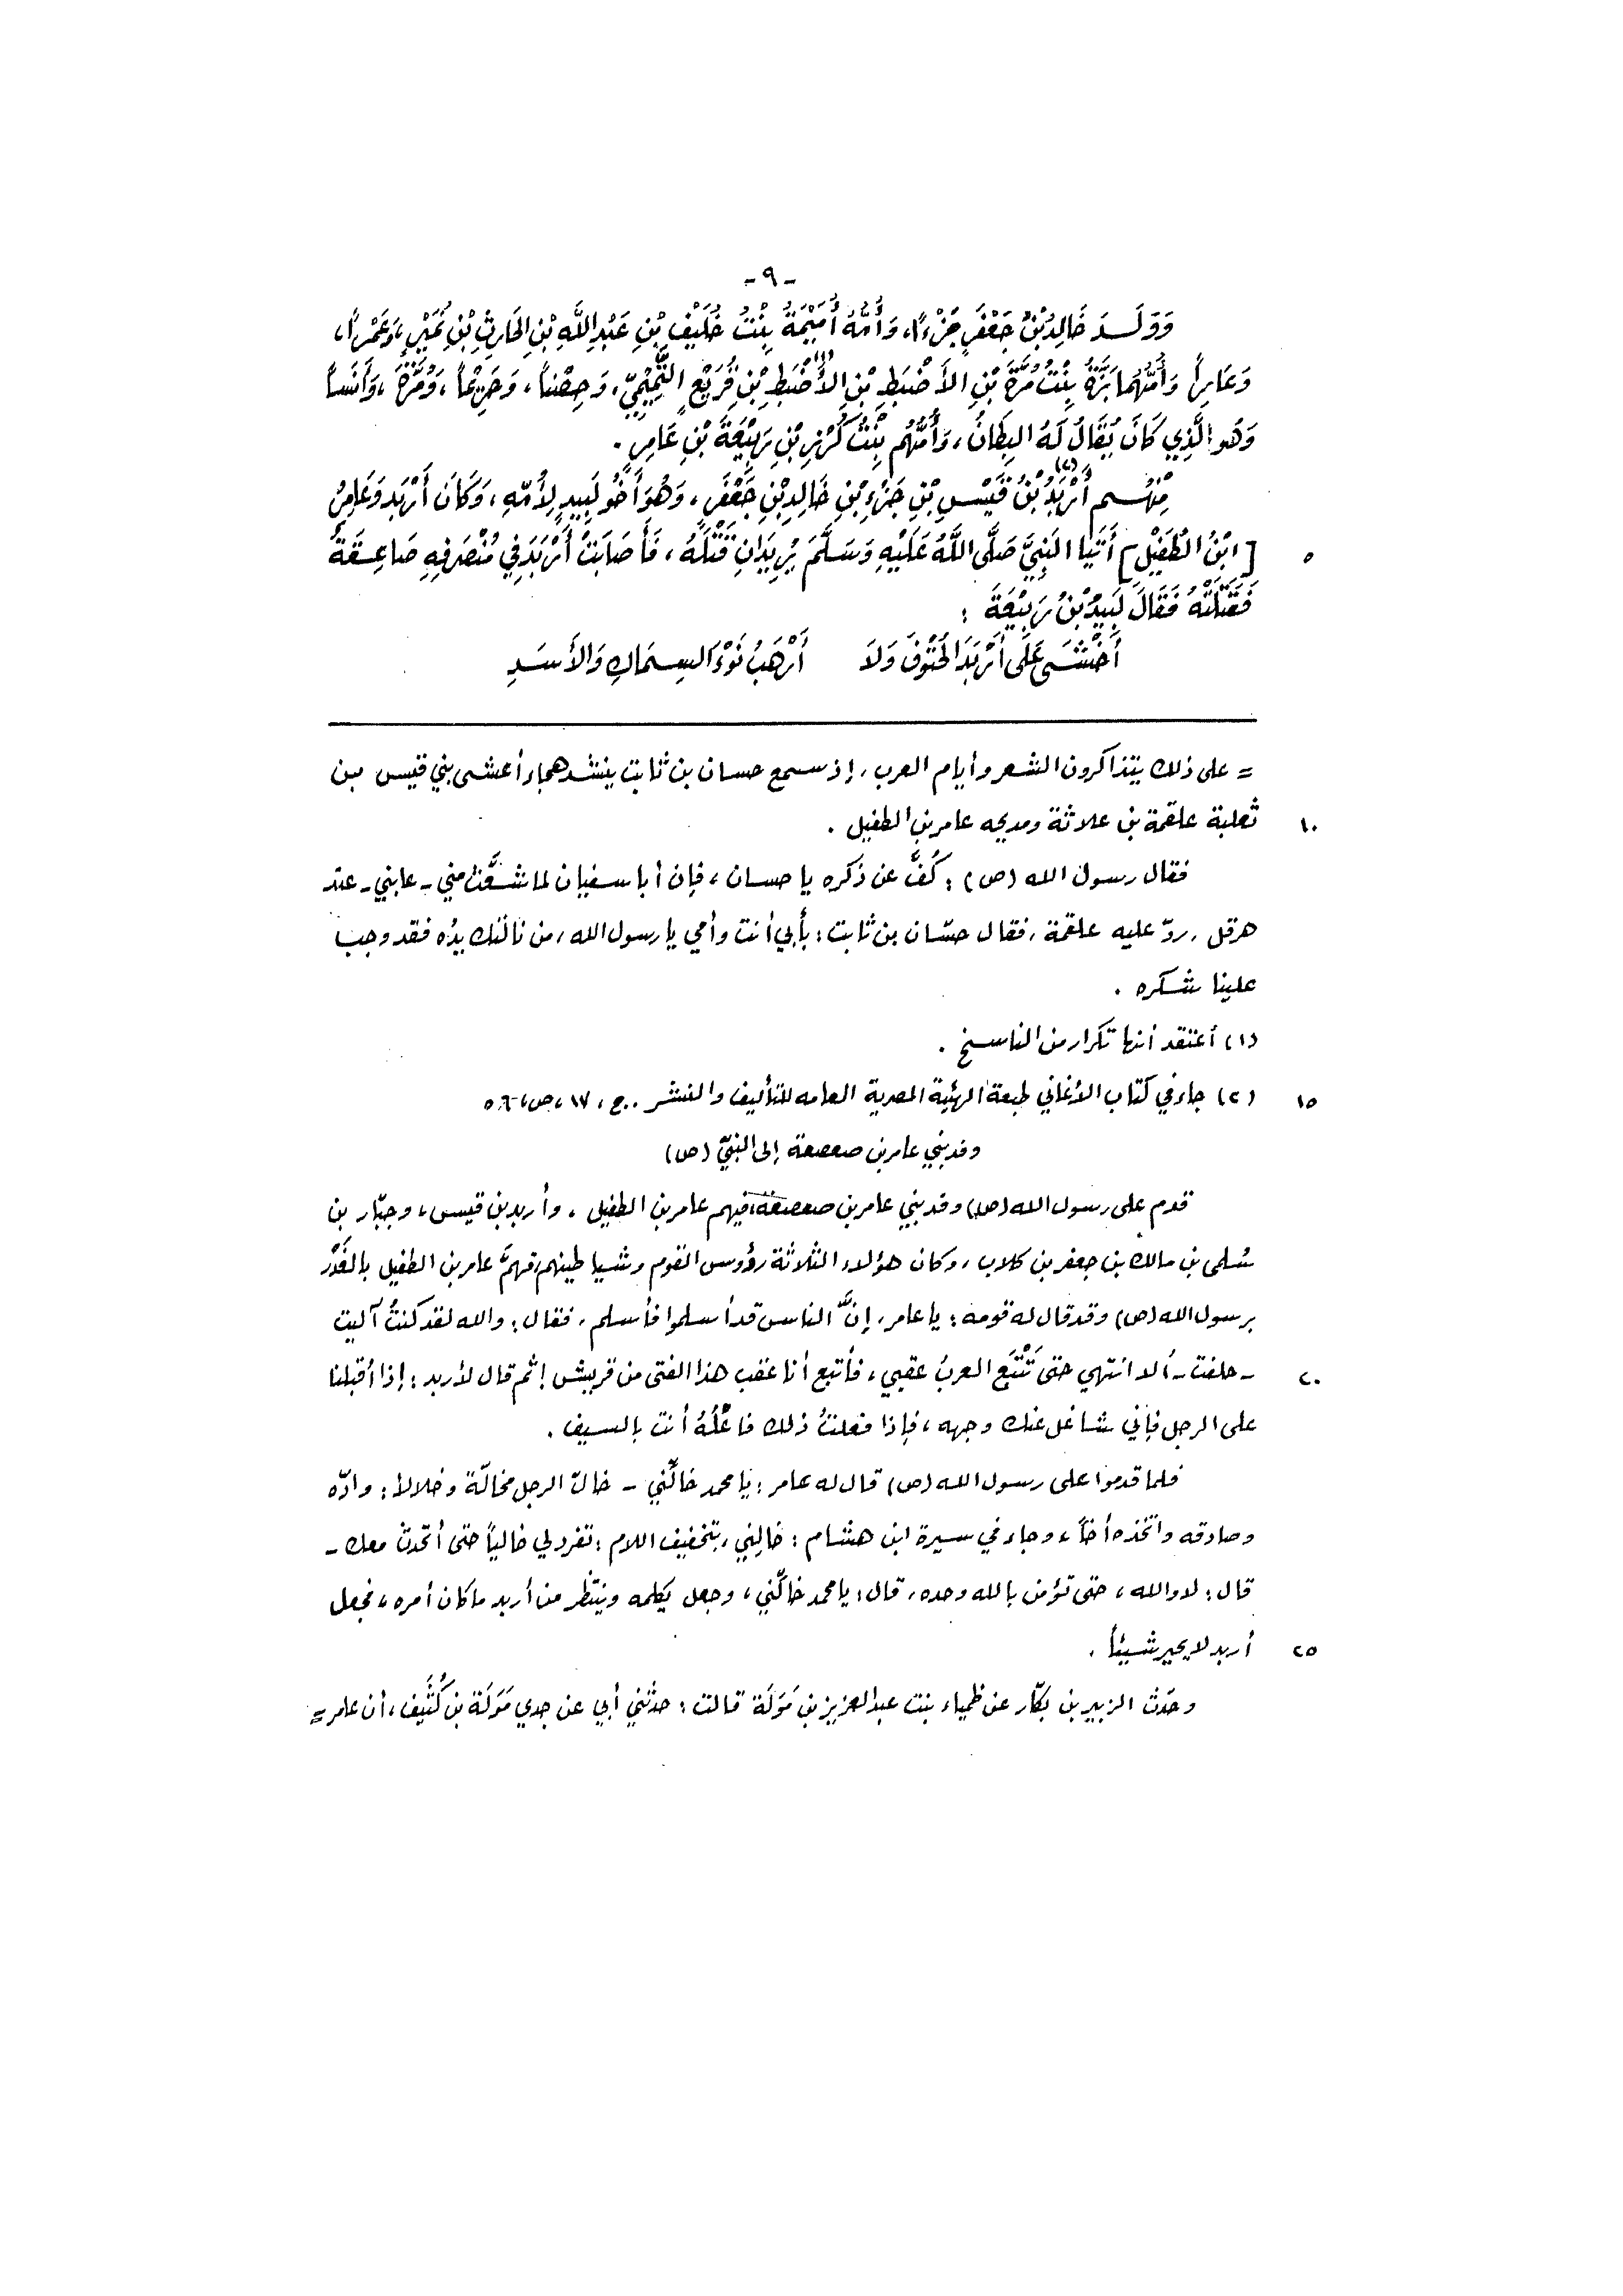 -٩-
وَوَلَدَ خَالِدُ بْنُ جَعْفَرٍ جَزْءًا، وَأُمُّهُ أُمَيْمَةُ بِنْتُ خُلَيْفِ بْنِ عَبْدِ اللَّهِ بْنِ الحَارِثِ بْنِ نُمَيْرٍ، وَعَمْرًا،
وَعَامِرًا وَأُمُّهُمَا بَرَّةُ بِنْتُ مُرَّةَ بْنِ الأَضْبَطِ بْنِ الأَضْبَطِ (١) بْنِ قُرَيْعٍ التَّمِيْمِيِّ، وَحِصْنًا، وَحَرِيْمًا، وَمُرَّةَ، وَأَنَسًا
وَهُوَ الَّذِي كَانَ يُقَالُ لَهُ البِطَانُ، وَأُمُّهُم بِنْتُ كُرْزِ بْنِ رَبِيْعَةَ بْنِ عَامِرٍ .
مِنْهُم أَرْبَدُ (٢) بْنُ قَيْسِ بْنِ جَزْءِ بْنِ خَالِدِ بْنِ جَعْفَرٍ، وَهُوَ أَخُو لَبِيدٍ لِأُمِّهِ، وَكَانَ أَرْبَد وَعَامِرُ
[ابْنُ الطُّفَيْلِ] أَتَيَا النَبِيَّ صَلَّى اللَّهُ عَلَيْهِ وَسَلَّمَ يُرِيْدَانِ قَتْلَهُ، فَأَصَابَتْ أَرْبَدَ فِي مُنْصَرَفِهِ صَاعِقَةٌ ٥
فَقَتَلَتْهُ فَقَالَ لَبِيدُ بْنُ رَبِيْعَةَ :
أَخْشَى عَلَى أَرْبَدَ الحُتُوفَ وَلاَ أَرْهَبُ نَوْءَ السِمَاكِ وَالأَسَدِ
= على ذلك يتذاكرون الشعر وأيام العرب، إذ سمع حسان بن ثابت ينشد هجاء أعشى بني قيس بن
ثعلبة علقمة بن علاثة ومديحه عامر بن الطفيل . ١٠
فقال رسول الله (ص) : كُفَّ عن ذكره يا حسان، فإن أبا سفيان لما شعَّث مني - عابني - عند
هرقل، ردّ عليه علقمة، فقال حسّان بن ثابت : بأبي أنت وأمي يا رسول الله، من نالتك يدُه فقد وجب
علينا شكره .
(١) أعتقد أنها تكرار من الناسخ .
(٢) جاء في كتاب الأغاني طبعة الهيئة المصرية العامه للتأليف والنشر .. ج، ١٧، ص، ٥٦ ١٥
وفد بني عامر بن صعصعة إلى النبيّ (ص)
قدم على رسول الله (ص) وفد بني عامر بن صعصعة، فيهم عامر بن الطفيل، وأربد بن قيس، وجبّار بن
سُلمى بن مالك بن جعفر بن كلاب، وكان هؤلاء الثلاثة رؤوس القوم وشياطينهم، فهمَّ عامر بن الطفيل بالغَدْر
برسول الله (ص) وقد قال له قومه : يا عامر، إنَّ الناس قد أسلموا فأسلم، فقال : والله لقد كنتُ آليت
- حلفت - ألا أنتهي حتى تَتْبَع العربُ عقبي، فأتبع أنا عقب هذا الفتى من قريش ! ثم قال لأربد : إذا أقبلنا ٢٠
على الرجل فإني شاغل عنك وجهه، فإذا فعلتُ ذلك فاعْلُهُ أنت بالسيف .
فلما قدموا على رسول الله (ص) قال له عامر : يا محمد خالَّني - خالّ الرجل مخالّة وخلالا : وادّه
وصادقه واتخذه أخاً، وجاء في سيرة ابن هشام : خالِني، بتخفيف اللام : تفرد لي خالياً حتى أتحدث معك -
قال : لا والله، حتى تؤمن بالله وحده، قال : يا محمد خالّني، وجعل يكلمه وينتظر من أربد ما كان أمره، فجعل
أربد لا يحير شيئاً . ٢٥
وحدّث الزبير بن بكّار عن ظمياء بنت عبد العزيز بن مَوَلَة قالت : حدثني أبي عن جدي مَوَلَة بن كُثَيف، أن عامر =